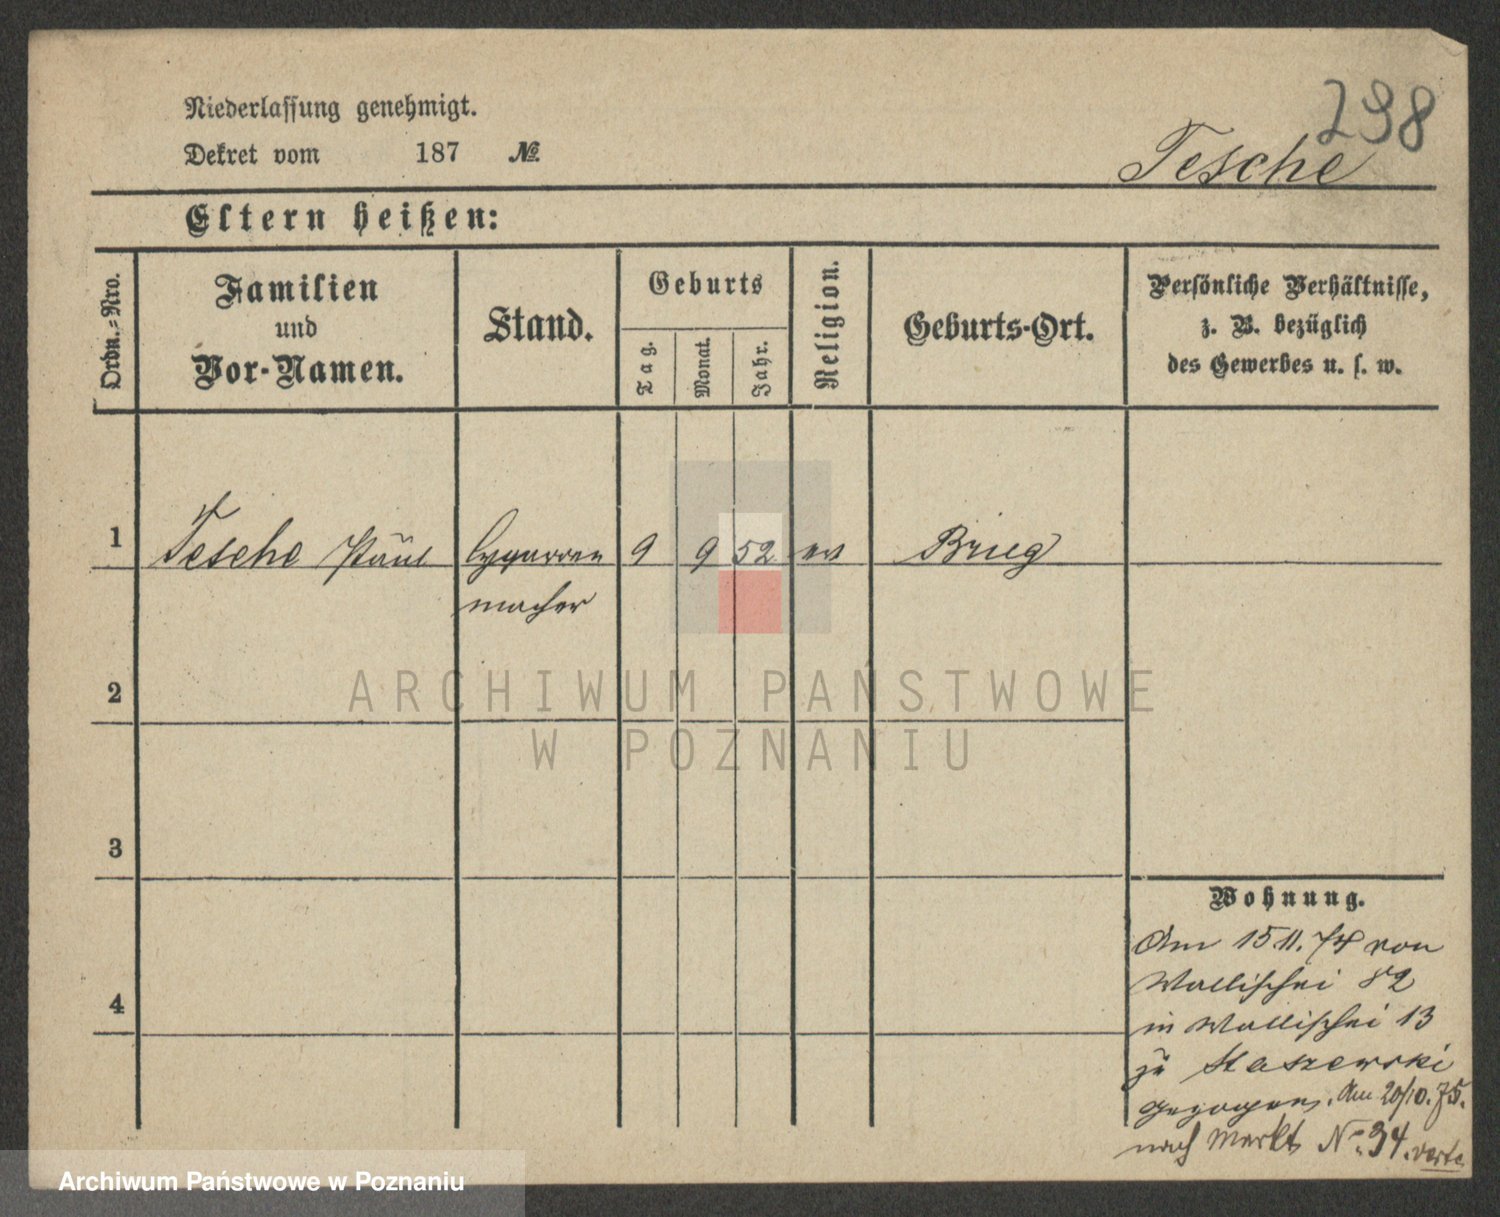 298
Niederlassung genehmigt.
Dekret vom 187 №
Tesche
Eltern heißen:
Ordn.=Nro.
Familien
und
Vor-Namen.
Stand.
Geburts
Tag.
Monat.
Jahr.
Religion.
Geburts-Ort.
Persönliche Verhältnisse,
z. B. bezüglich
des Gewerbes u. s. w.
1 Tesche Paul Cygarren 9 9 52 ev Brieg
macher
2
ARCHIWUM PAŃSTWOWE
W POZNANIU
3
4
Wohnung.
Am 15 11. 74 von
Wallischei 82
in Wallischei 13
zu Staszewski
gezogen. Am 20/10. 75.
nach Markt No 34. verte
Archiwum Państwowe w Poznaniu